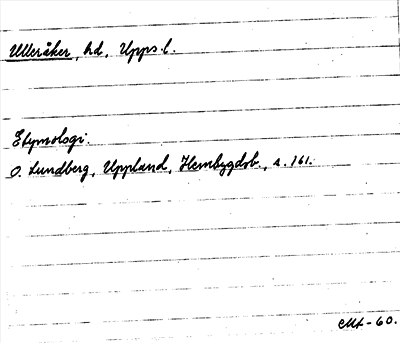 Ulleråker, hd, Upps. l.
Etymologi.
O. Lundberg, Uppland, Hembygdsb., s. 161.
Mt - 60.